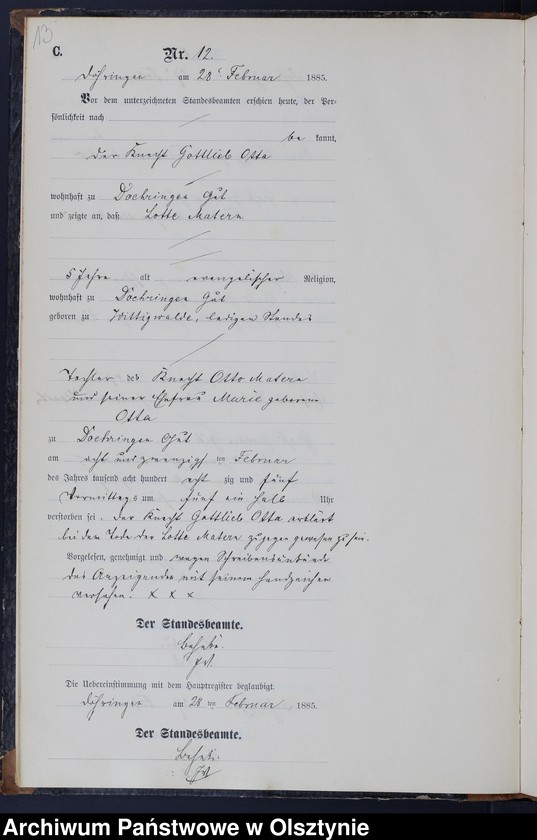 13
C.
Nr. 12.
Döhringen am 28t Februar 1885.
Vor dem unterzeichneten Standesbeamten erschien heute, der Per-
sönlichkeit nach
be kannt,
der Knecht Gottlieb Otta
wohnhaft zu Doehringen Gut
und zeigte an, daß Lotte Matern
5 Jahre alt evangelischer Religion,
wohnhaft zu Doehringen Gut
geboren zu Wittigwalde, ledigen Standes
Tochter des Knecht Otto Matern
und seiner Ehefrau Marie geborene
Otta
zu Doehringen Gut
am acht und zwanzigsten Februar
des Jahres tausend acht hundert acht zig und fünf
Vormittags um fünf ein halb Uhr
verstorben sei. Der Knecht Gottlieb Otta erklärt
bei dem Tode der Lotte Matern zugegen gewesen zu sein.
Vorgelesen, genehmigt und wegen Schreibensunkunde
des Anzeigenden mit seinem Handzeichen
versehen. x x x
Der Standesbeamte.
Die Uebereinstimmung mit dem Hauptregister beglaubigt.
Döhringen am 28ten Februar 1885.
Der Standesbeamte.
Archiwum Państwowe w Olsztynie